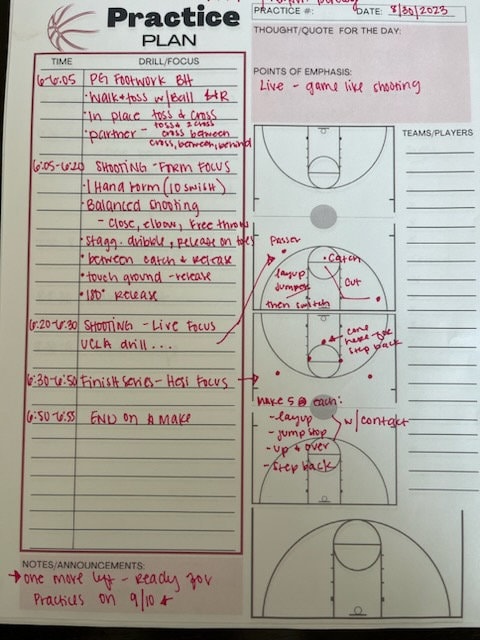 Practice
PLAN
PRACTICE #: DATE: 8/30/2023
THOUGHT/QUOTE FOR THE DAY:
POINTS OF EMPHASIS:
Live - game like shooting
TIME DRILL/FOCUS
6-6:05 PG1 Footwork BH
·Walk + toss w/Ball L+R
·In place toss & cross
·partner - toss + 2 cross
cross between
cross, between, behind
6:05-6:20 SHOOTING - Form FOCUS
·1 Hand Form (10 swish)
·Balanced Shooting
- close, elbow, Free throw
·stagg. dribble, release on toes
·between catch & release
·touch ground - release
·180° Release
6:20-6:30 SHOOTING - Live Focus
UCLA drill...
6:30-6:50 Finish Series - Hesi Focus
6:50-6:55 END ON A MAKE
TEAMS/PLAYERS
Passer
Catch
layup
jumper
Out
then switch
come
here for
step back
make 5 @ each:
- layup
- jump stop
- up & over
- step back
w/ contact
NOTES/ANNOUNCEMENTS:
→ one more left - Ready for
Practices on 9/10